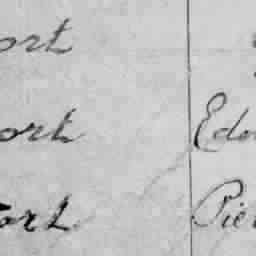 ort
ort Edou
ort Pier